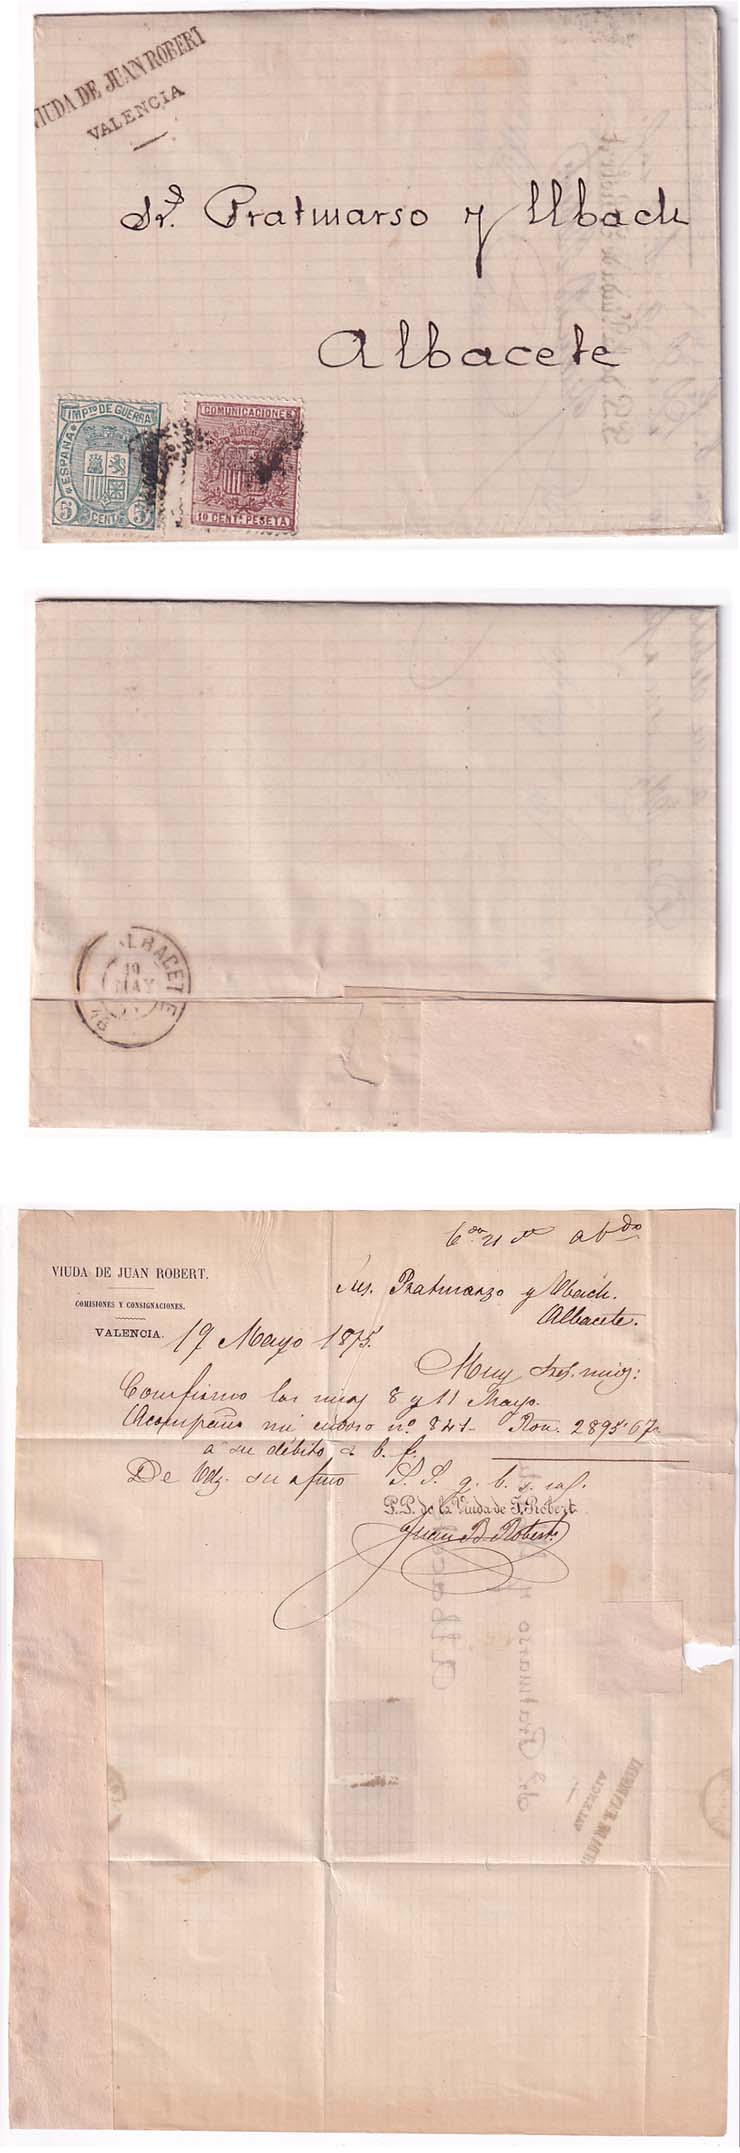 VIUDA DE JUAN ROBERT
VALENCIA
Sr.s Pratmarso y Llbach
Albacete
IMPTO DE GUERRA
ESPAÑA
5 CENTS 5
COMUNICACIONES
10 CENT. PESETA
ALBACETE
19
MAY
VIUDA DE JUAN ROBERT.
COMISIONES Y CONSIGNACIONES.
VALENCIA. 17 Mayo 1875.
Pratmarzo y Llbach.
Albacete.
Muy Sres. mios:
Confirmo las mias 8 y 11 Mayo.
Acompaño mi nº 841 2895·67
a su débito
De Vdz. su afmo S. S. q. b. s. m.
P.P. de la Viuda de J. Robert.
Juan B. Robert.
VALENCIA